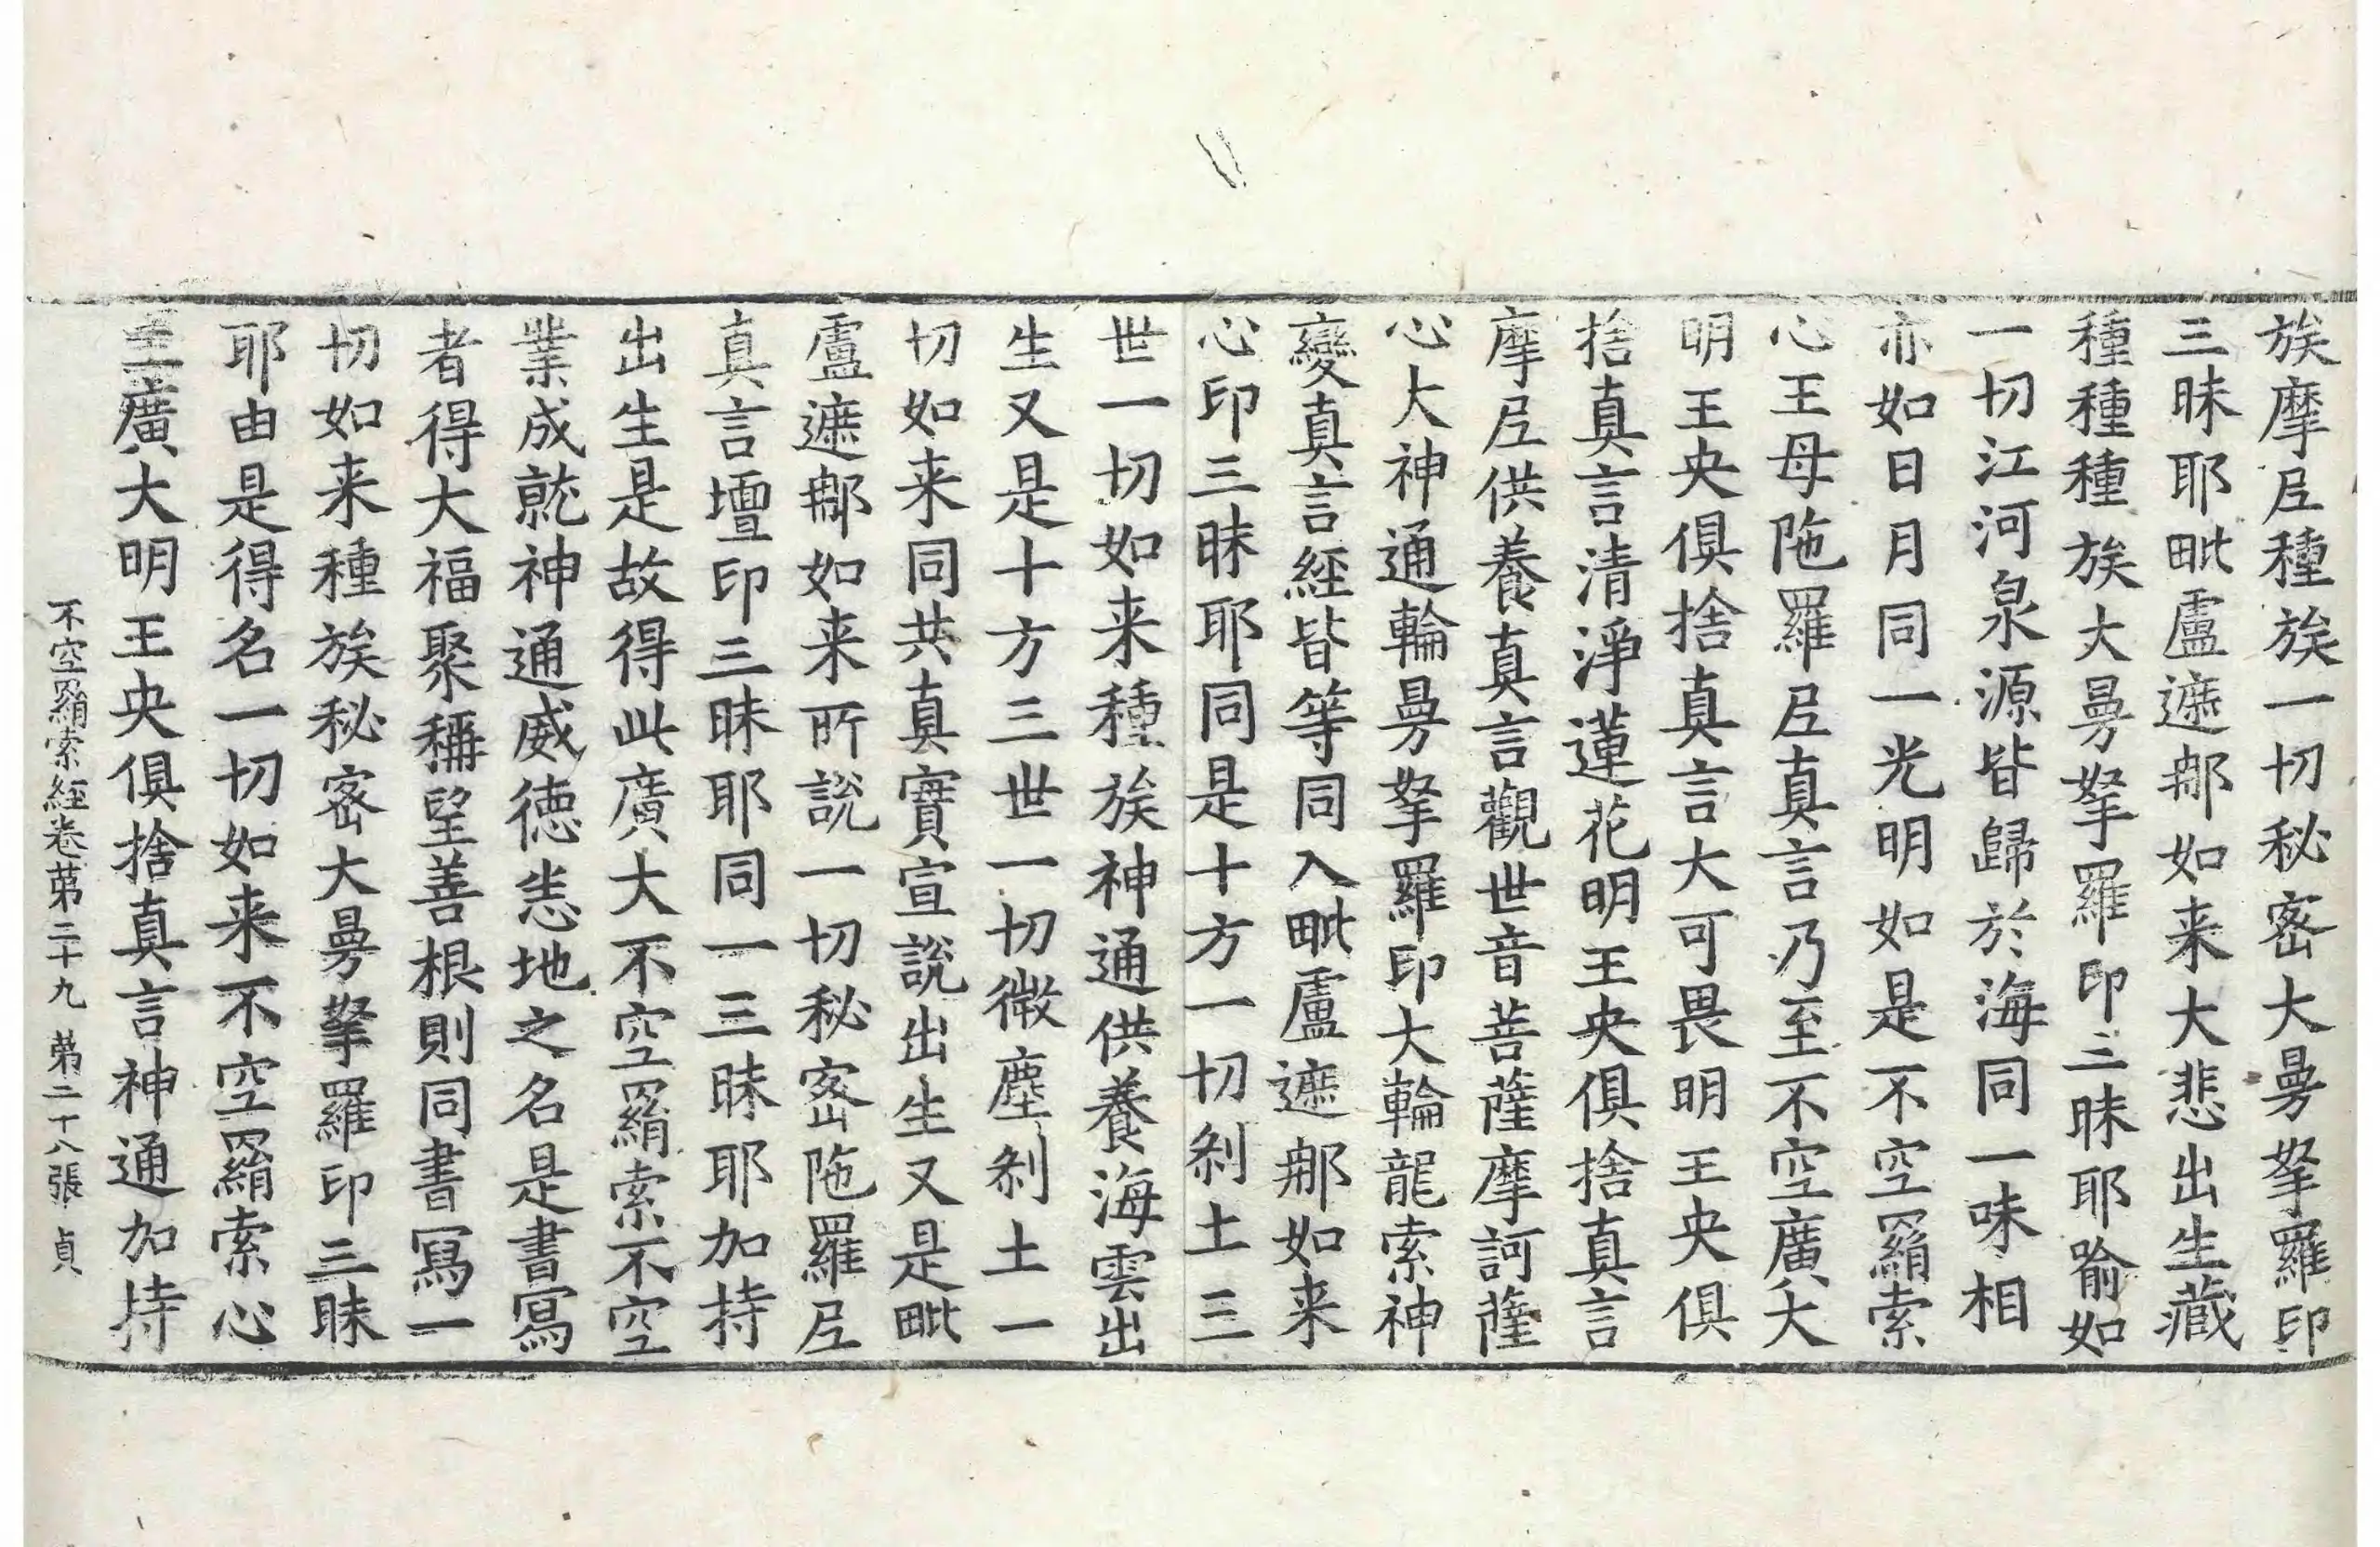 族摩尼種族一切秘密大曼拏羅印
三昧耶毗盧遮那如来大悲出生藏
種種種族大曼拏羅印三昧耶喻如
一切江河泉源皆歸於海同一味相
亦如日月同一光明如是不空羂索
心王母陁羅尼真言乃至不空廣大
明王央俱捨真言大可畏明王央俱
捨真言清淨蓮花明王央俱捨真言
摩尼供養真言觀世音菩薩摩訶薩
心大神通輪曼拏羅印大輪龍索神
變真言經皆等同入毗盧遮那如来
心印三昧耶同是十方一切剎土三
世一切如来種族神通供養海雲出
生又是十方三世一切微塵剎土一
切如来同共真實宣說出生又是毗
盧遮那如来所說一切秘密陁羅尼
真言壇印三昧耶同一三昧耶加持
出生是故得此廣大不空羂索不空
業成就神通威德恙地之名是書寫
者得大福聚稱望善根則同書寫一
切如来種族秘密大曼拏羅印三昧
耶由是得名一切如来不空羂索心
王廣大明王央俱捨真言神通加持
不空羂索經卷第二十九 第二十八張 貞